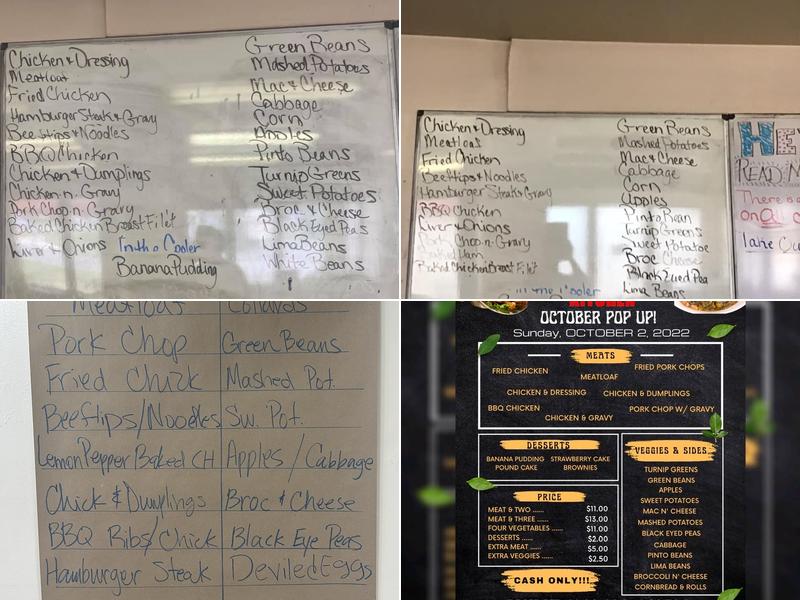 Chicken & Dressing
Meatloaf
Fried Chicken
Hamburger Steak & Gravy
Beef tips & Noodles
BBQ Chicken
Chicken & Dumplings
Chicken-n-Gravy
Pork Chop-n-Gravy
Baked Chicken Breast Filet
Liver & Onions
In the Cooler
Banana Pudding
Green Beans
Mashed Potatoes
Mac & Cheese
Cabbage
Corn
Apples
Pinto Beans
Turnip Greens
Sweet Potatoes
Broc & Cheese
Black Eyed Peas
Lima Beans
White Beans
Chicken & Dressing
Meatloaf
Fried Chicken
Beef tips & Noodles
Hamburger Steak & Gravy
BBQ Chicken
Liver & Onions
Pork Chop-n-Gravy
Baked Ham
Baked Chicken Breast Filet
In the Cooler
Green Beans
Mashed Potatoes
Mac & Cheese
Cabbage
Corn
Apples
Pinto Bean
Turnip Greens
Sweet Potatoe
Broc Cheese
Black Eyed Pea
Lima Beans
HE
READ:M
There is a
on All c
take Cu
Meatloaf Collards
Pork Chop Green Beans
Fried Chick Mashed Pot.
Beeftips/Noodles Sw. Pot.
Lemon Pepper Baked CH Apples / Cabbage
Chick & Dumplings Broc & Cheese
BBQ Ribs/Chick Black Eye Peas
Hamburger Steak Deviled Eggs
KITCHEN
OCTOBER POP UP!
Sunday, OCTOBER 2, 2022
MEATS
FRIED CHICKEN
MEATLOAF
FRIED PORK CHOPS
CHICKEN & DRESSING
CHICKEN & DUMPLINGS
BBQ CHICKEN
CHICKEN & GRAVY
PORK CHOP W/ GRAVY
DESSERTS
BANANA PUDDING STRAWBERRY CAKE
POUND CAKE BROWNIES
PRICE
MEAT & TWO ...... $11.00
MEAT & THREE ...... $13.00
FOUR VEGETABLES ...... $11.00
DESSERTS ...... $2.00
EXTRA MEAT ...... $5.00
EXTRA VEGGIES ...... $2.50
CASH ONLY!!!
VEGGIES & SIDES
TURNIP GREENS
GREEN BEANS
APPLES
SWEET POTATOES
MAC N' CHEESE
MASHED POTATOES
BLACK EYED PEAS
CABBAGE
PINTO BEANS
LIMA BEANS
BROCCOLI N' CHEESE
CORNBREAD & ROLLS